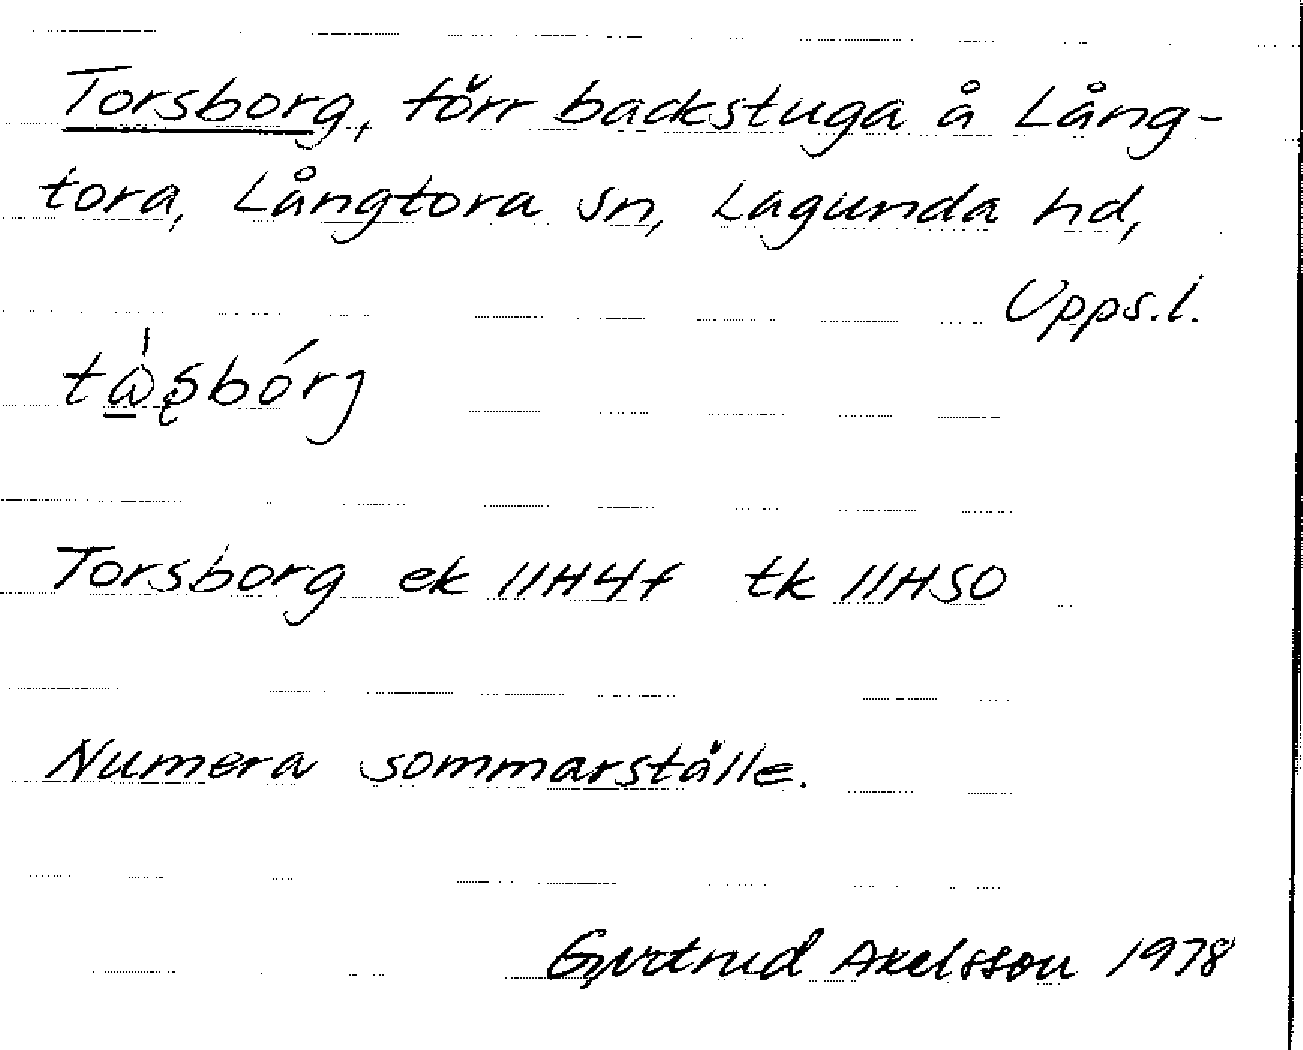 Torsborg, förr backstuga å Lång-
tora, Långtora sn, Lagunda hd,
Upps.l.
Torsborg ek 11H4f tk 11HSO
Numera sommarställe.
Gertrud Axelsson 1978